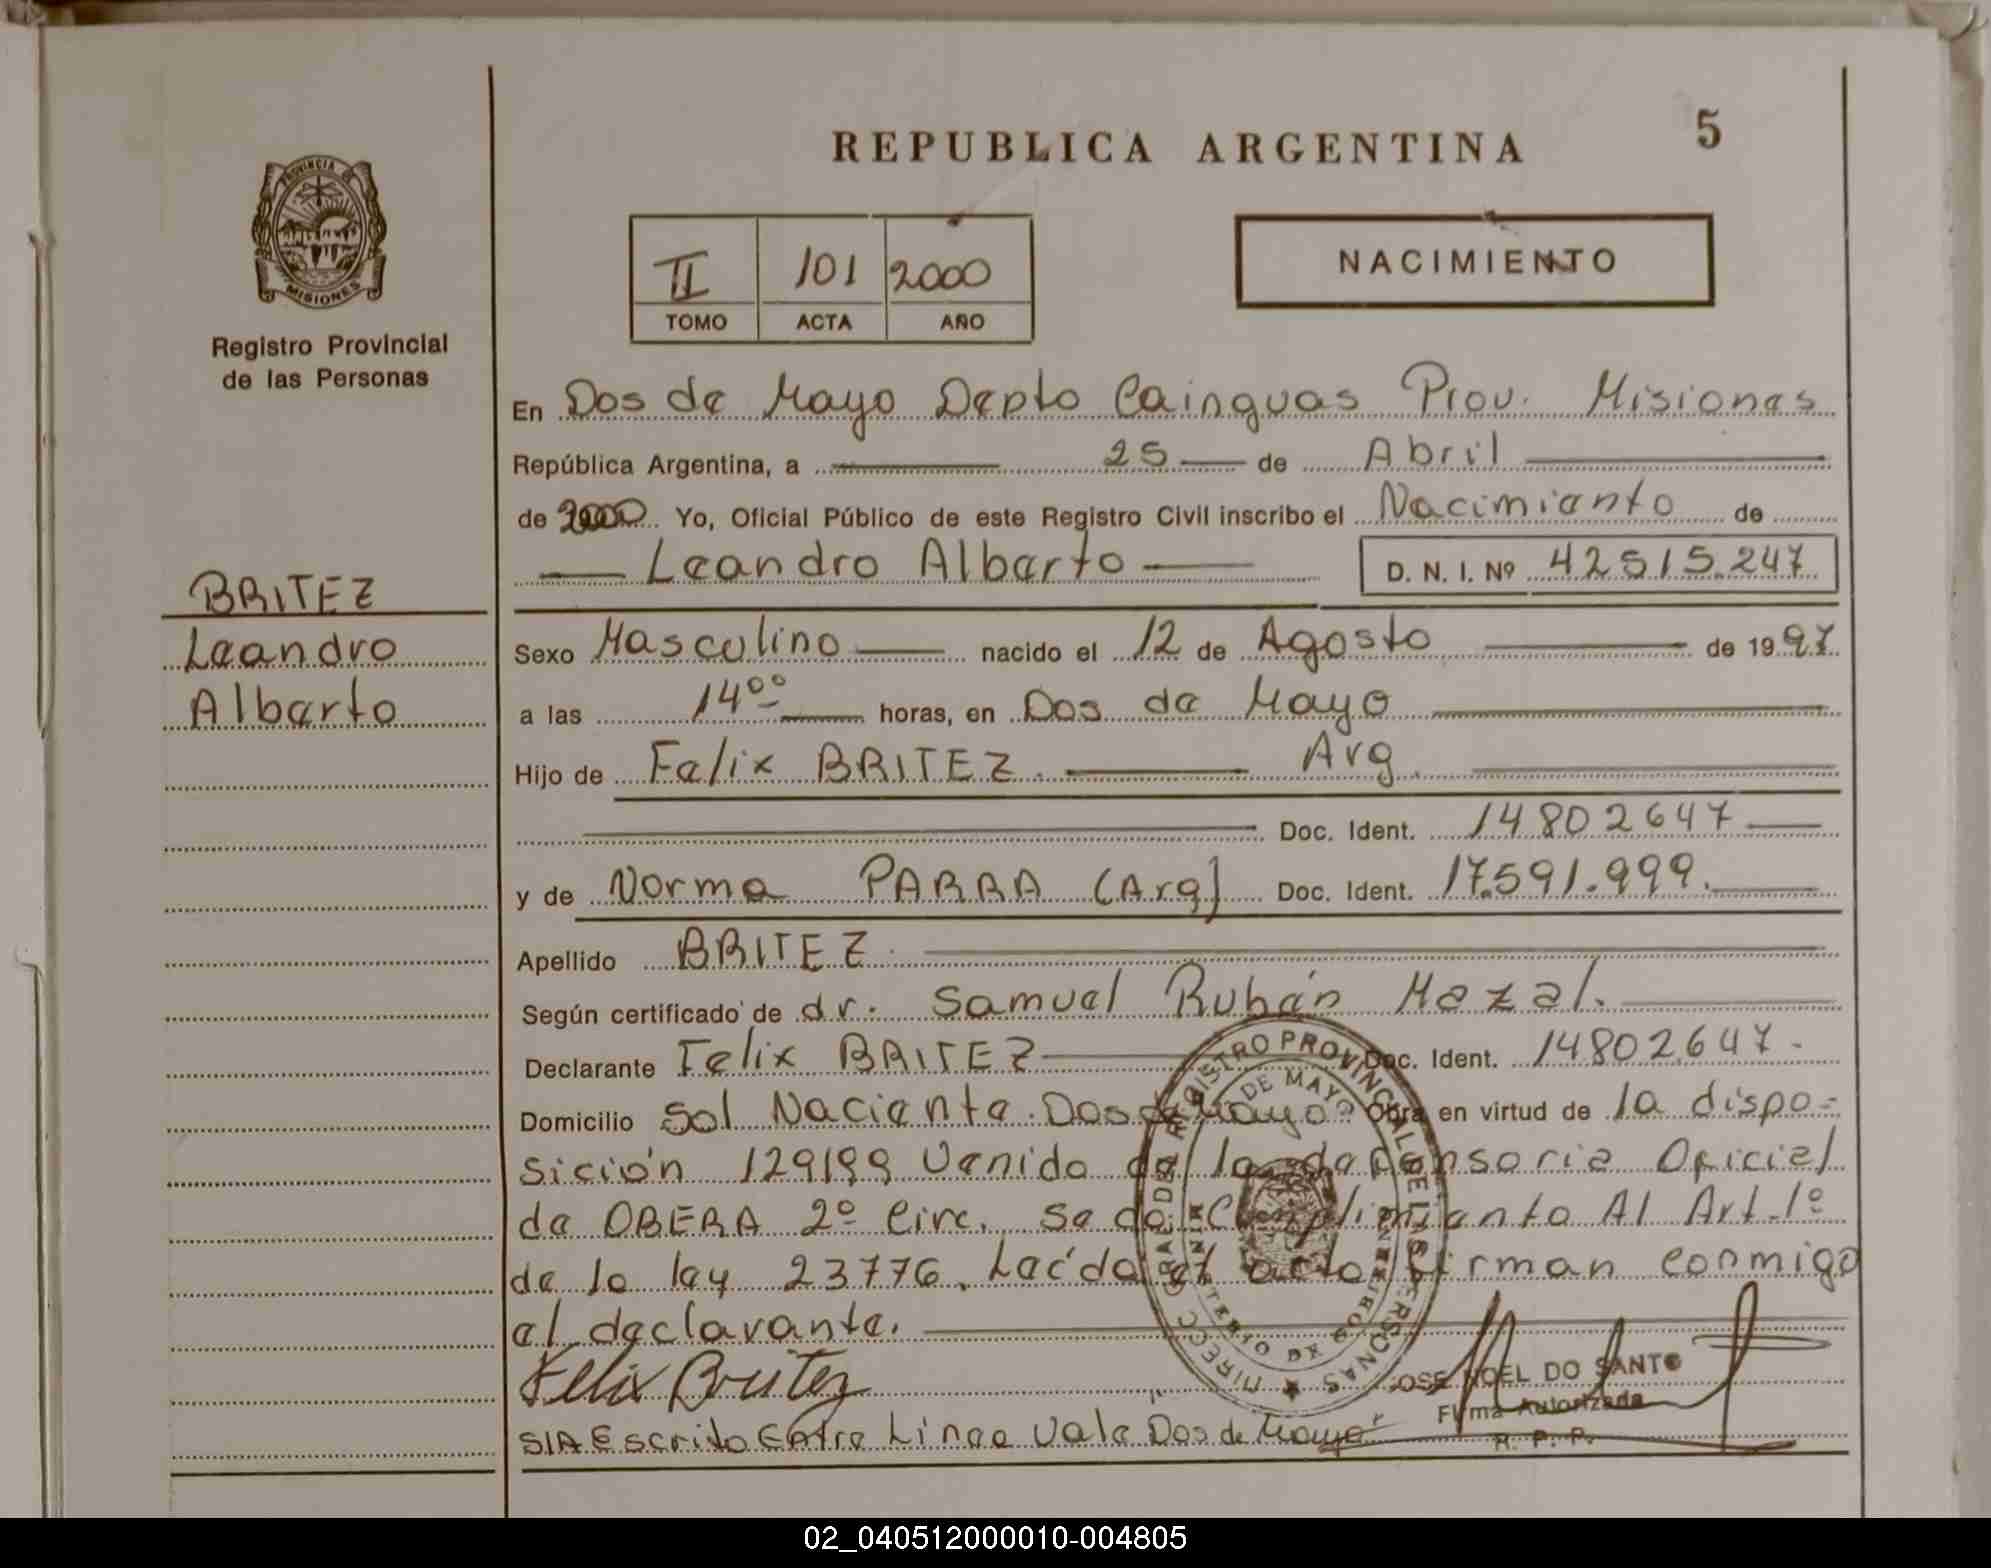 REPUBLICA ARGENTINA
5
PROVINCIA DE
MISIONES
Registro Provincial
de las Personas
II 101 2000
TOMO ACTA AÑO
NACIMIENTO
En Dos de Mayo Depto Cainguas Prov. Misiones
República Argentina, a 25 de Abril
de 2000 Yo, Oficial Público de este Registro Civil inscribo el Nacimiento de
Leandro Alberto D. N. I. Nº 42515.247
BRITEZ
Leandro
Alberto
Sexo Masculino nacido el 12 de Agosto de 1997
a las 14⁰⁰ horas, en Dos de Mayo
Hijo de Felix BRITEZ. Arg.
Doc. Ident. 14802647
y de Norma PARRA (Arg) Doc. Ident. 17.591.999.
Apellido BRITEZ.
Según certificado de dr. Samuel Rubén Mazal.
Declarante Felix BRITEZ Doc. Ident. 14802647.
Domicilio Sol Naciente. Dos de Mayo? Obra en virtud de la dispo=
sición 129199 Venido de la defensoria Oficial
de OBERA 2º Circ. Se da Cumplimiento Al Art. 1º
de la ley 23776. Leída el acta firman conmigo
el declarante.
Felix Britez
S/A Escrito Entre Linea Vale "Dos de Mayo"
JOSE NOEL DO SANTO
Firma Autorizada
R. P. P.
DIRECC. GRAL. DEL REGISTRO PROVINCIAL DE LAS PERSONAS
DE MAYO
MINISTERIO DE GOBIERNO
02_040512000010-004805